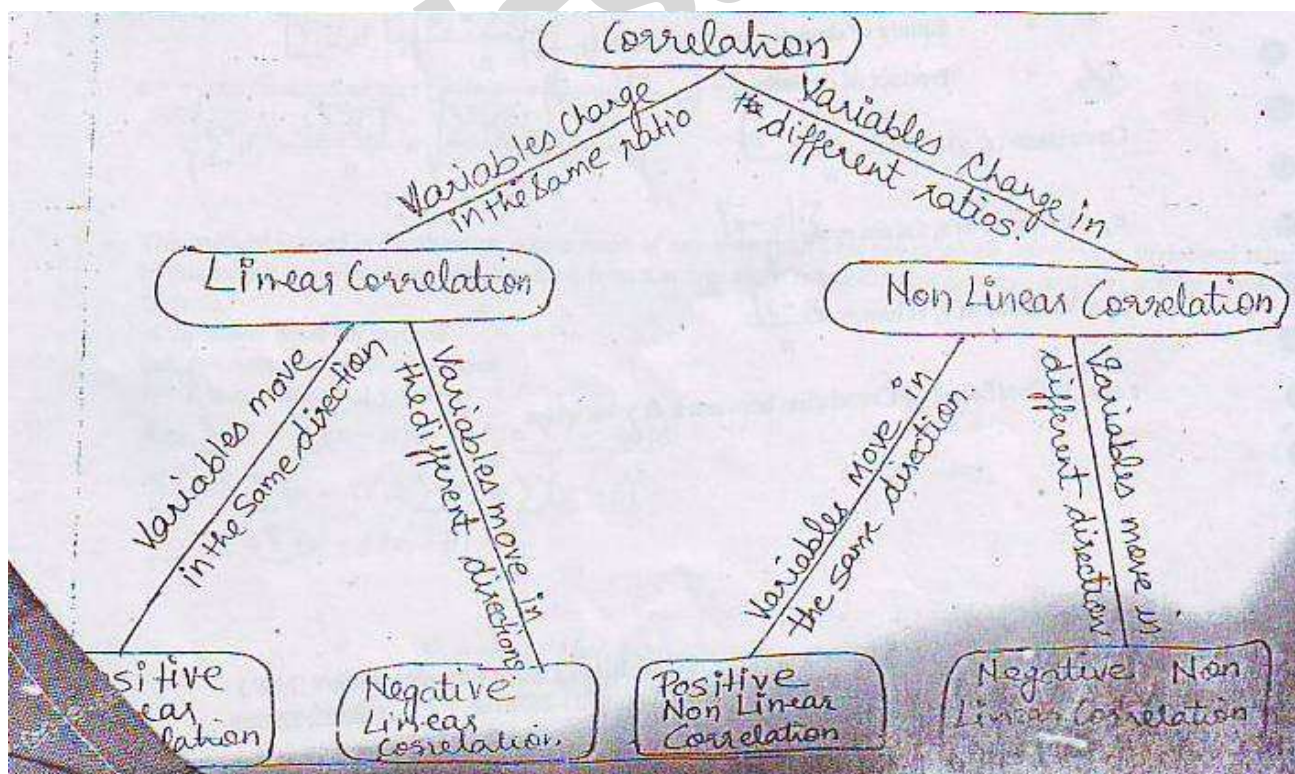 Correlation
Variables Change
in the same ratio
Variables Change in
the different ratios.
Linear Correlation
Non Linear Correlation
Variables move
in the same direction
Variables move in
the different directions
Variables move in
the same direction
Variables move in
different direction
sitive
ear
lation
Negative
Linear
Correlation.
Positive
Non Linear
Correlation
Negative Non
Linear Correlation